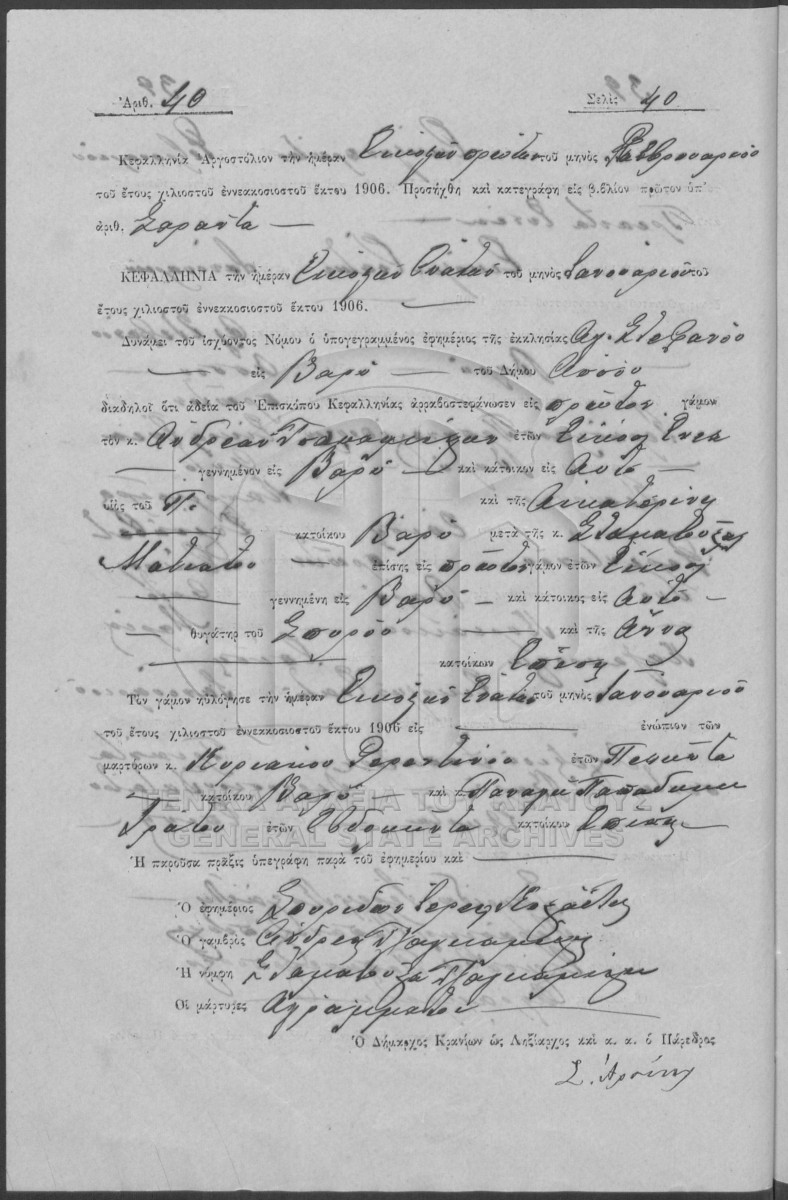 Ἀριθ. 40 Σελὶς 40
Κεφαλληνία Ἀργοστόλιον τὴν ἡμέραν Εἰκοστὴν πρώτην τοῦ μηνὸς Φεβρουαρίου
τοῦ ἔτους χιλιοστοῦ ἐννεακοσιοστοῦ ἕκτου 1906. Προσήχθη καὶ κατεγράφη εἰς βιβλίον πρῶτον ὑπ'
ἀριθ. Σαράντα —
ΚΕΦΑΛΛΗΝΙΑ τὴν ἡμέραν Εἰκοστὴν Ενάτην τοῦ μηνὸς Ιανουαρίου τοῦ
ἔτους χιλιοστοῦ ἐννεακοσιοστοῦ ἕκτου 1906. —
Δυνάμει τοῦ ἰσχύοντος Νόμου ὁ ὑπογεγραμμένος ἐφημέριος τῆς ἐκκλησίας Αγ. Στεφάνου
— εἰς Βαρύ — τοῦ Δήμου
διαδηλοῖ ὅτι ἀδείᾳ τοῦ Ἐπισκόπου Κεφαλληνίας ἀρραβοστεφάνωσεν εἰς πρῶτον γάμον
τὸν κ. Ανδρέαν ἐτῶν Είκοσι Εννέα
— γεννημένον εἰς Βαρύ — καὶ κάτοικον εἰς Αυτό —
υἱὸς τοῦ Π. καὶ τῆς Αικατερίνης
— κατοίκου Βαρύ μετὰ τῆς κ. Σταματούλας
— ἐπίσης εἰς πρῶτον γάμον ἐτῶν Είκοσι
— γεννημένη εἰς Βαρύ — καὶ κάτοικος εἰς Αυτό —
— θυγάτηρ τοῦ Σπύρου — καὶ τῆς Άννα
— κατοίκων Επίσης
Τὸν γάμον ηὐλόγησε τὴν ἡμέραν Εικοστὴν Ενάτην τοῦ μηνὸς Ιανουαρίου
τοῦ ἔτους χιλιοστοῦ ἐννεακοσιοστοῦ ἕκτου 1906 εἰς — ἐνώπιον τῶν
μαρτύρων κ. Κυριάκου ἐτῶν Πενήντα
— κατοίκου Βαρύ — καὶ κ. Παναγή Παπαδημη
τράτου ἐτῶν Εβδομήντα κατοίκου Επίσης —
ΓΕΝΙΚΑ ΑΡΧΕΙΑ ΤΟΥ ΚΡΑΤΟΥΣ
GENERAL STATE ARCHIVES
Ἡ παροῦσα πρᾶξις ὑπεγράφη παρὰ τοῦ ἐφημερίου καὶ —
Ὁ ἐφημέριος Σπυρίδων Ιερεύς
Ὁ γαμβρὸς Ανδρέας
Ἡ νύμφη Σταματούλα
Οἱ μάρτυρες Αγράμματοι —
Ὁ Δήμαρχος Κρανίων ὡς Ληξίαρχος καὶ κ. κ. ὁ Πάρεδρος